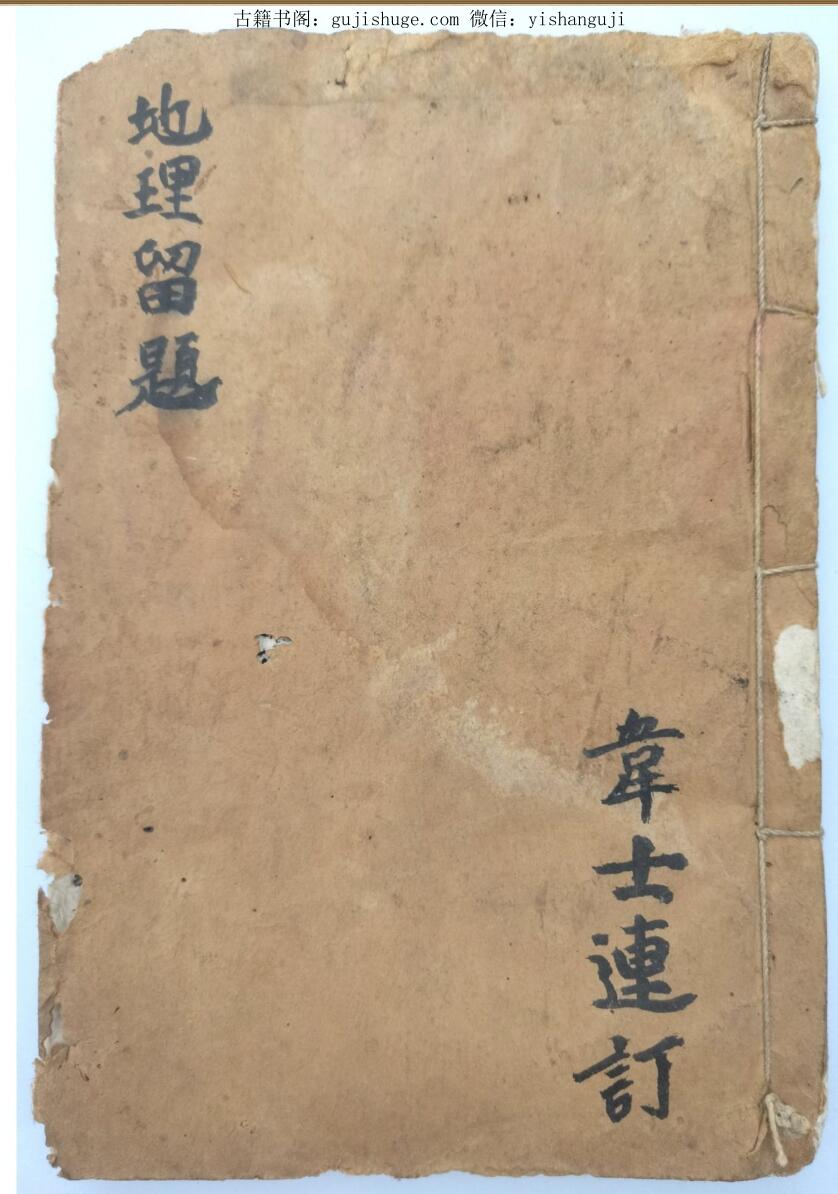 古籍书阁：gujishuge.com 微信：yishanguji
地理留題
韋士連訂